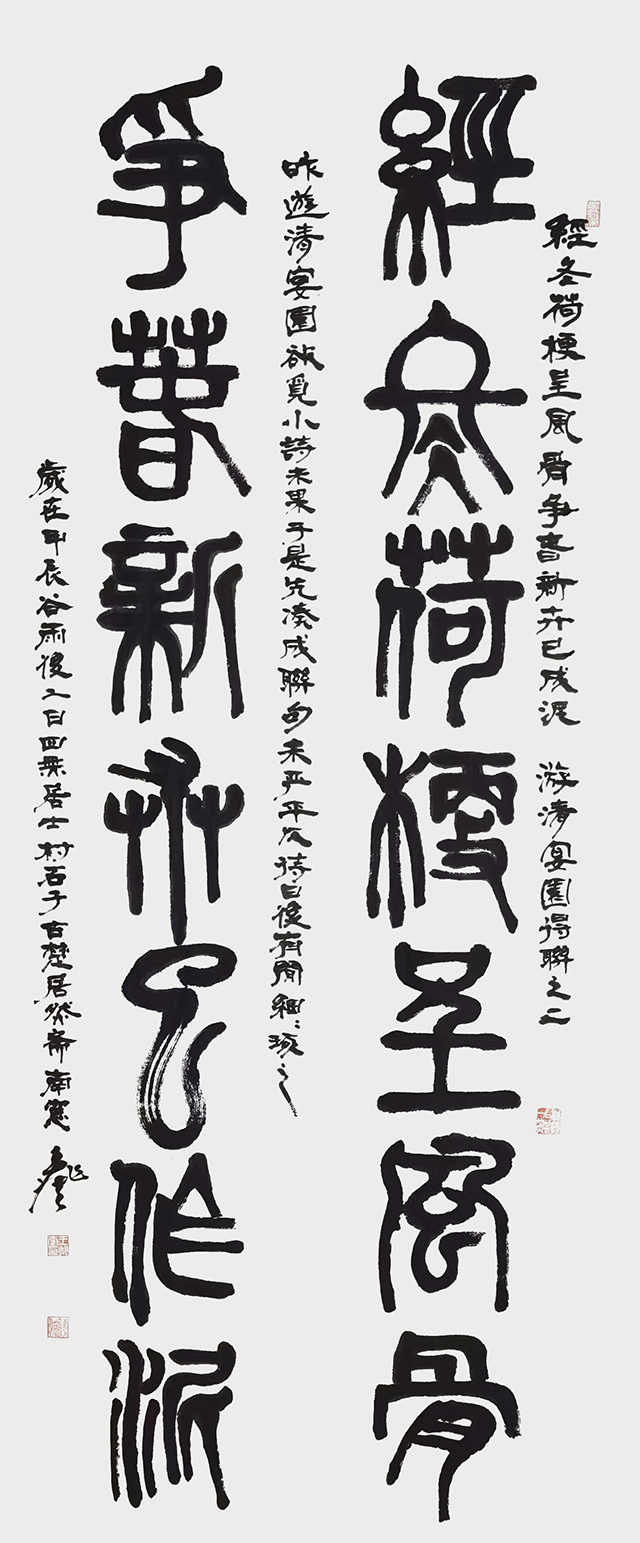 經冬荷梗呈風骨爭春新卉已成泥 游清宴園得聯之二
經冬荷梗呈風骨
昨遊清宴園欲覓小詩未果于是先湊成聯句未严平仄待日後有閒細〻琢之
爭春新卉已作泥
歲在甲辰谷雨後二日四無居士村石子古楚居然齋南窗